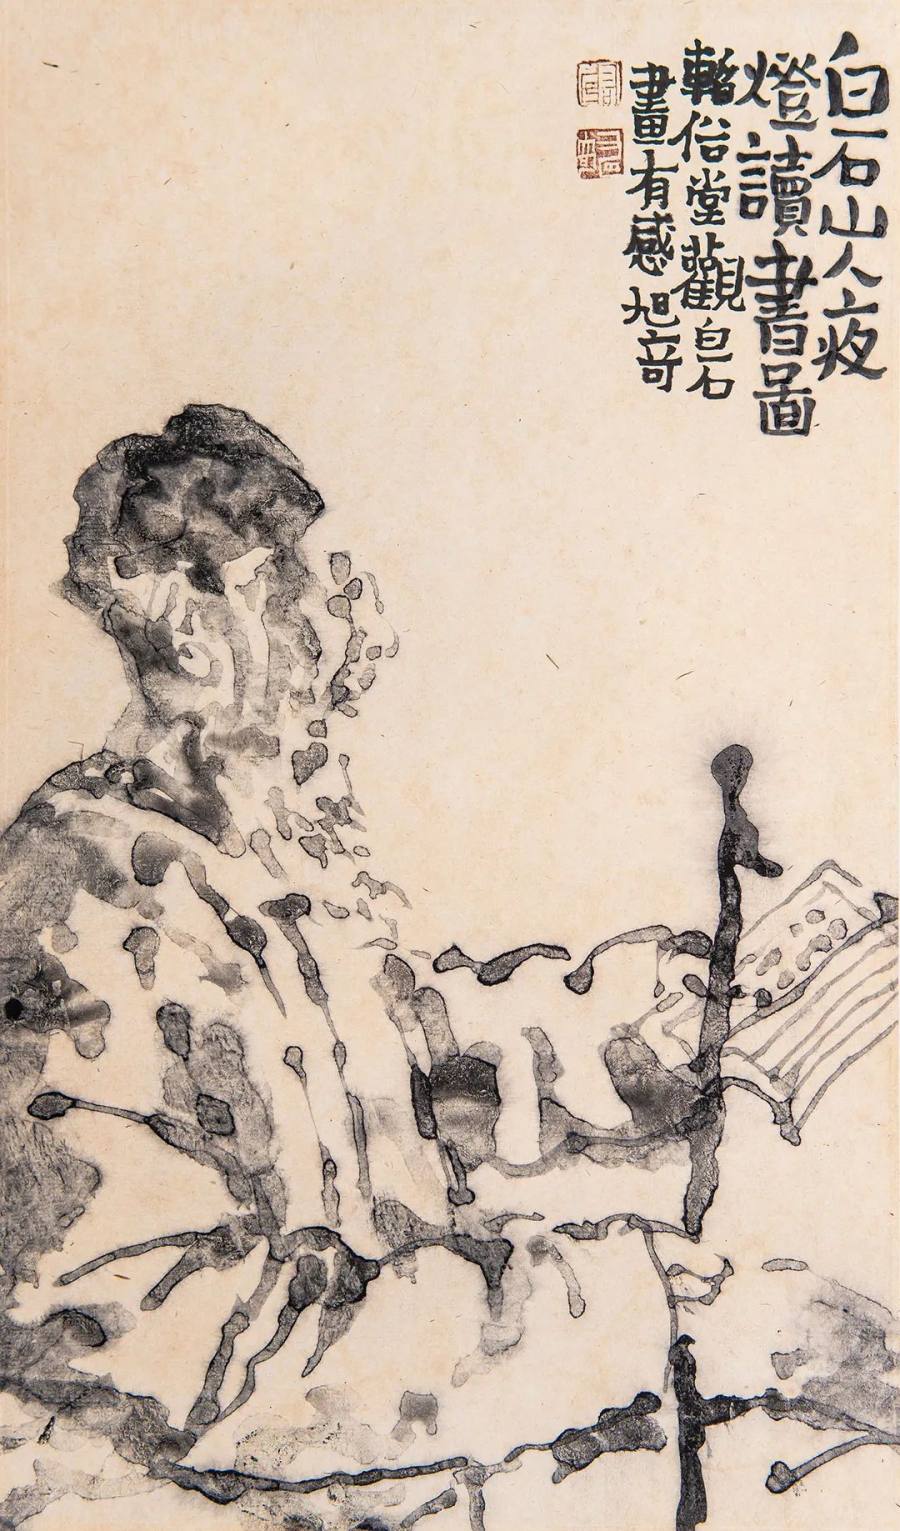 白石山人夜
燈讀書圖
俗堂觀白石
畫有感 旭竒